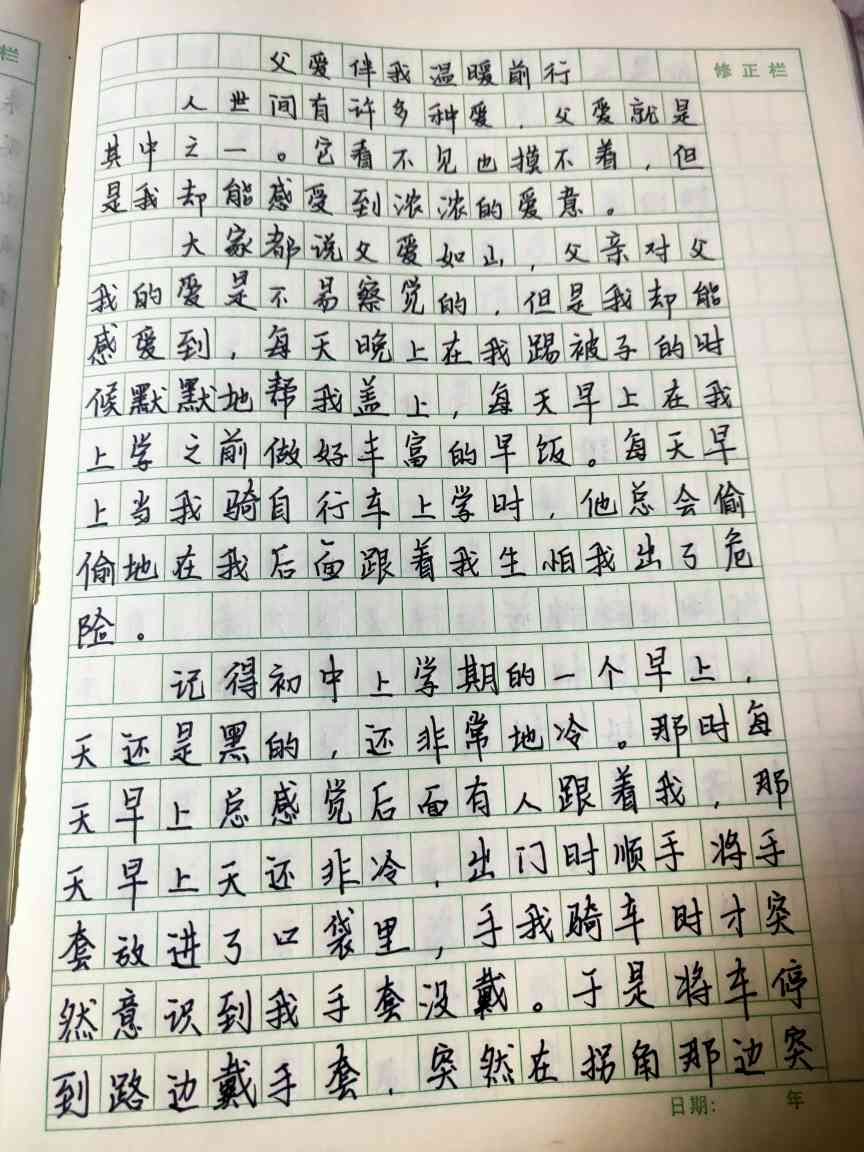 栏
父爱伴我温暖前行
修正栏
人世间有许多种爱，父爱就是
其中之一。它看不见也摸不着，但
是我却能感受到浓浓的爱意。
大家都说父爱如山，父亲对父
我的爱是不易察觉的，但是我却能
感受到，每天晚上在我踢被子的时
候默默地帮我盖上，每天早上在我
上学之前做好丰富的早饭。每天早
上当我骑自行车上学时，他总会偷
偷地在我后面跟着我生怕我出了危
险。
记得初中上学期的一个早上，
天还是黑的，还非常地冷。那时每
天早上总感觉后面有人跟着我，那
天早上天还非冷，出门时顺手将手
套放进了口袋里，手我骑车时才突
然意识到我手套没戴。于是将车停
到路边戴手套，突然在拐角那边突
日期：
年